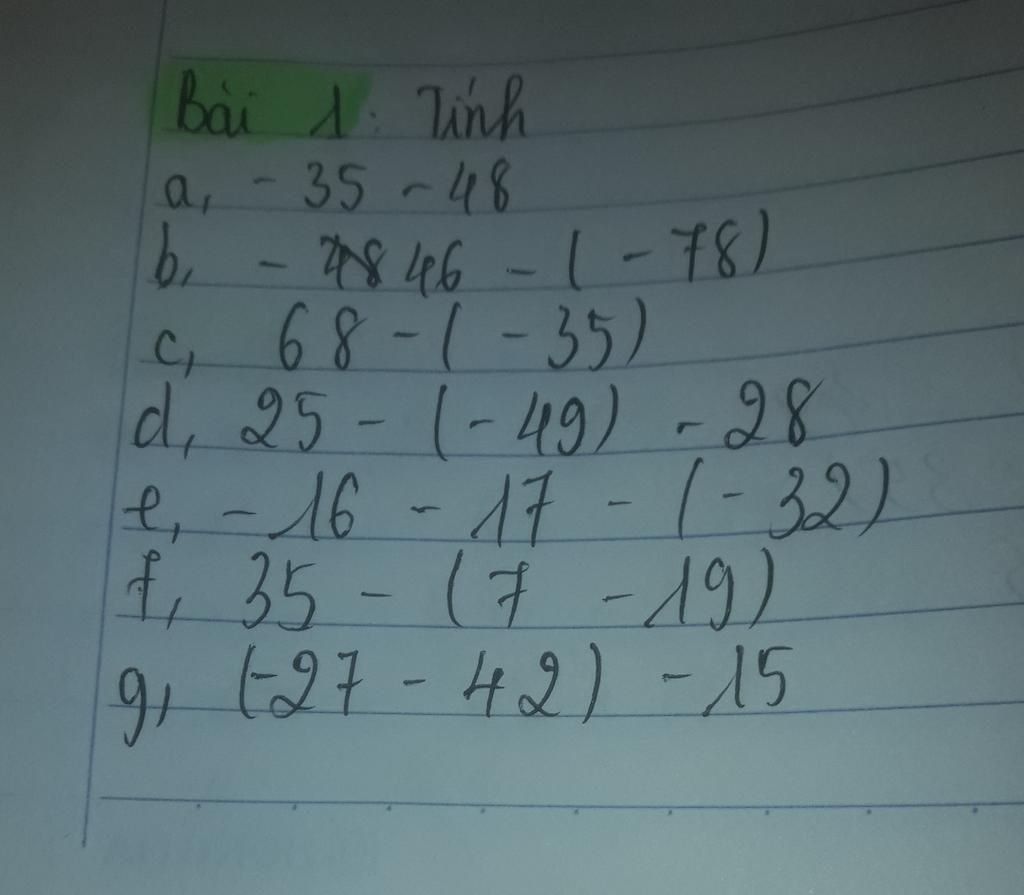 Bài 1: Tính
a, - 35 - 48
b, - 46 - ( - 78)
c, 68 - ( - 35)
d, 25 - (- 49) - 28
e, - 16 - 17 - (- 32)
f, 35 - (7 - 19)
g, (-27 - 42) - 15